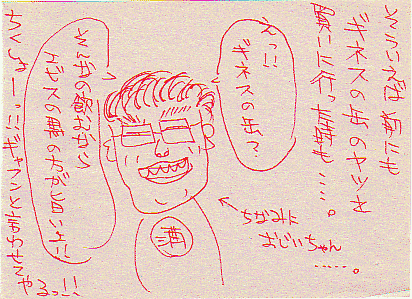 そういえば前にも
ギネスの缶のヤツを
買いに行った時も……。
えっ!!
ギネスの缶?
そんなの飲むなら
エビスの黒の方が旨いよ!!
ちくしょーっ!!ギャフンと言わせてやるっ!!
ちなみに
おじいちゃん
……。